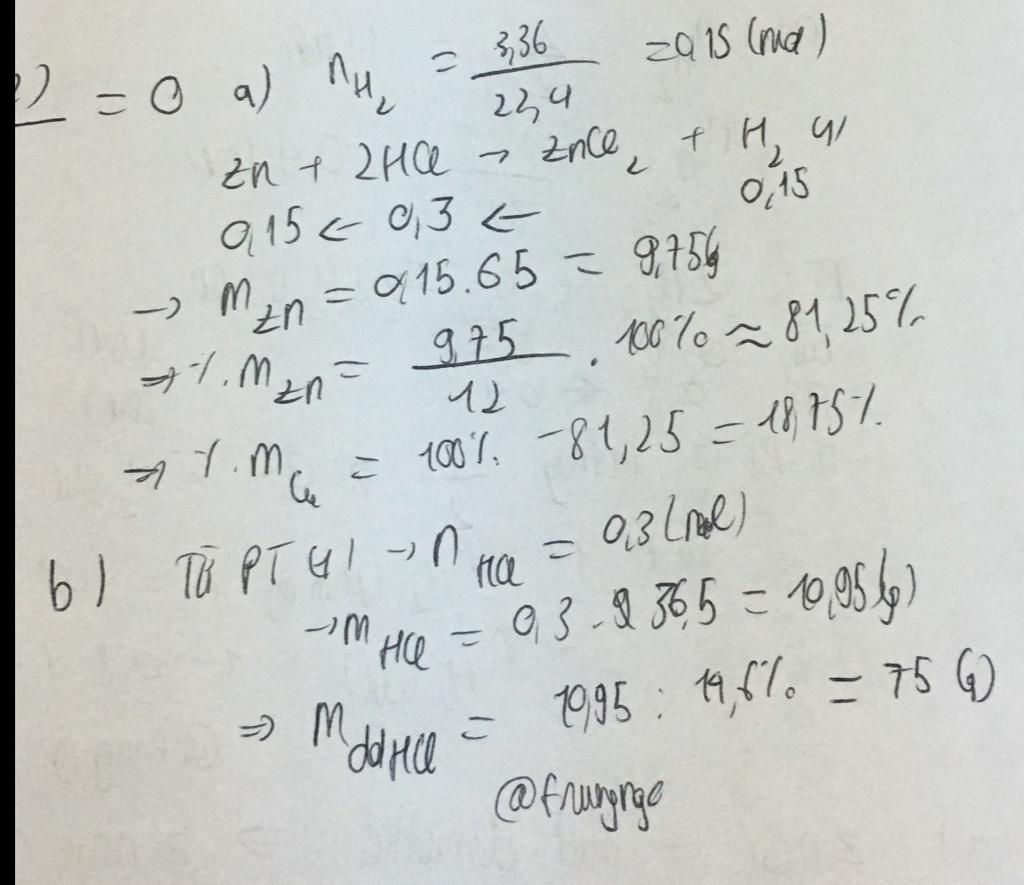 = 0 a) n_H₂ = 3,36/22,4 = 0,15 (mol)
Zn + 2HCl → ZnCl₂ + H₂ (1)
0,15 ← 0,3 ← 0,15
→ m_Zn = 0,15.65 = 9,75g
⇒ %m_Zn = 9,75/12 . 100% ≈ 81,25%
⇒ %m_Cu = 100% - 81,25 = 18,75%
b) Từ PT (1) → n_HCl = 0,3 (mol)
→ m_HCl = 0,3 . 36,5 = 10,95 (g)
⇒ m_ddHCl = 10,95 : 14,6% = 75 (g)